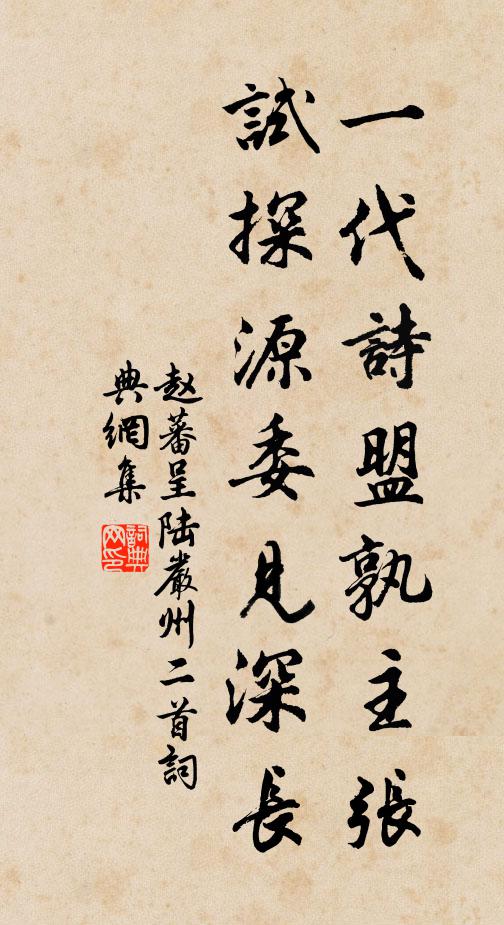 一代詩盟孰主張
試探源委見深長
赵蕃呈陆嚴州二首詞
典網集
詞典網印